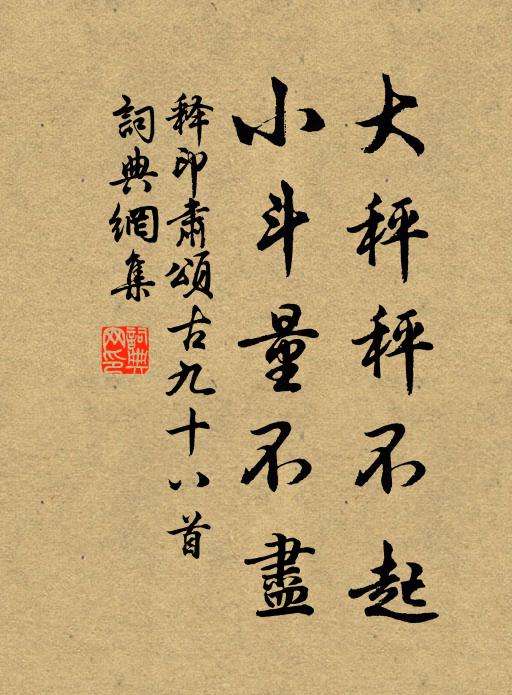 大秤秤不起
小斗量不盡
释印肃頌古九十八首
詞典網集
詞典
网印